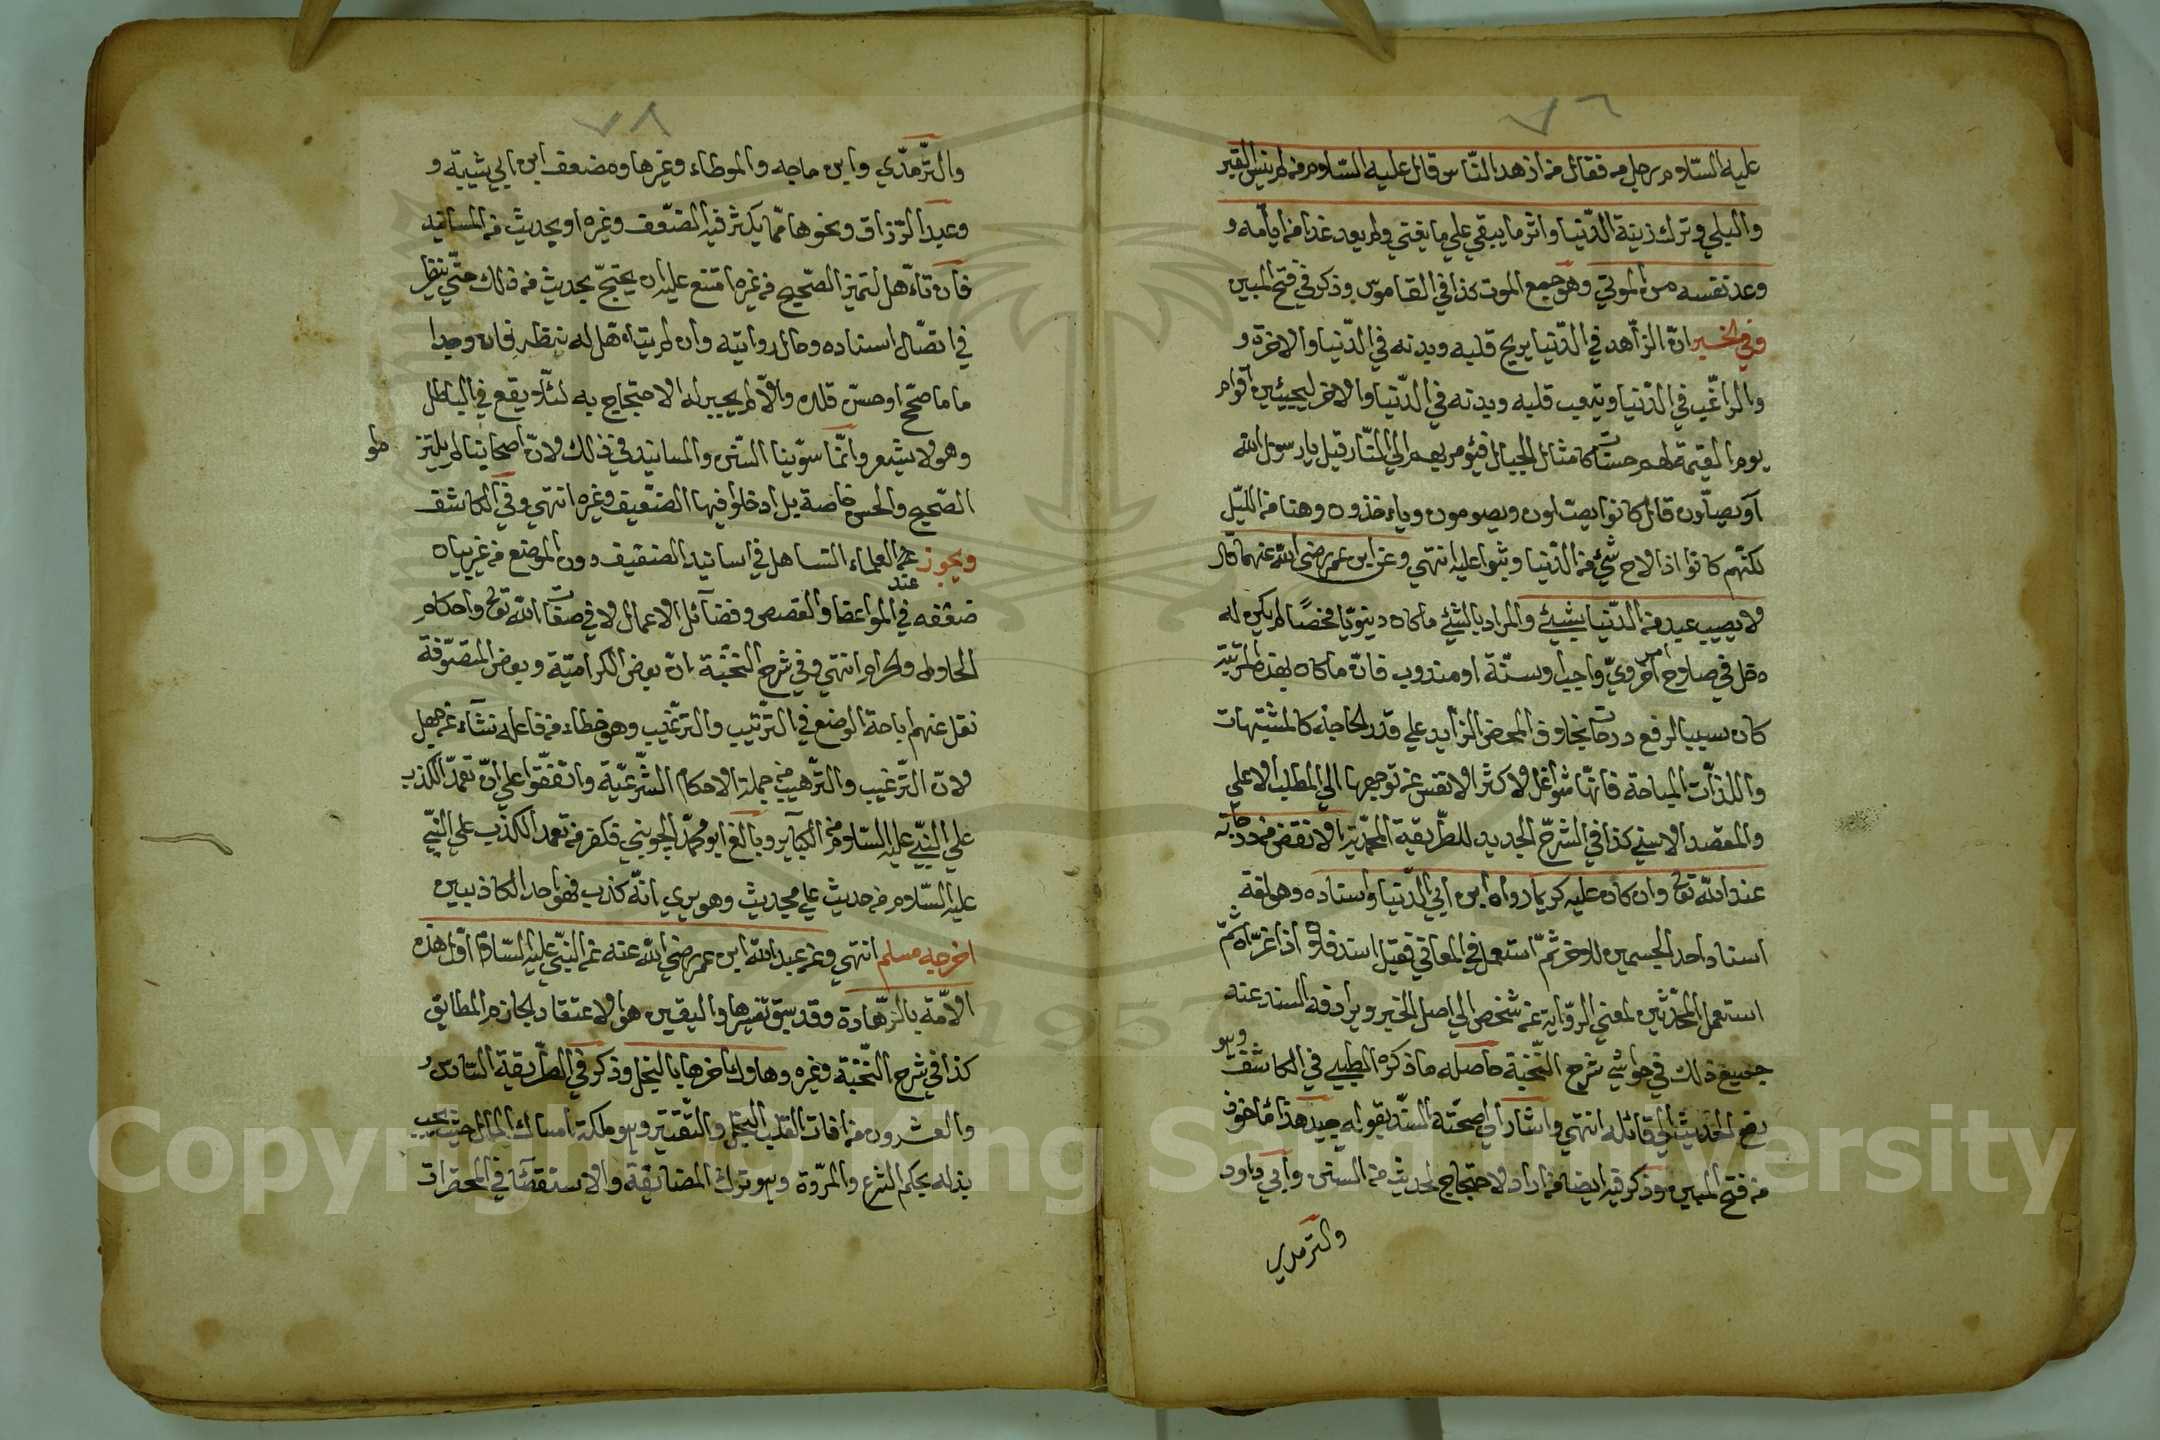 ٧٦
عليه السلام رجل فقال من ازهد الناس قال عليه السلام من لم ينس القبر
والبلي وترك زينة الدّنيا واثر ما يبقي علي ما يفني ولم يعد غدا من ايامه و
وعد نفسه من الموتي وهو جمع الموت كذا في القاموس وذكر في فتح المبين
وفي الخبر انّ الزّاهد في الدّنيا يريح قلبه وبدنه في الدّنيا والاخرة و
والراغّب في الدّنيا ويتعب قلبه وبدنه في الدّنيا والاخر ليجيئن اقوام
يوم القيمة لهم حسنات كامثال الجبال فيؤمر بهم الي النّار قيل يا رسول الله
أو يصلّون قال كانوا يصلون ويصومون وياءخذون وهنا من اللّيل
لكنّهم كانوا اذا لاح شئ من الدّنيا وثبوا عليه انتهي وعن ابن عمر رضي الله عنهما قال
لا يصيب عبد من الدّنيا بشيئ والمراد بالشئ ما كان دنيويّا محضًا لم يكن له
دخل في صلاح امر اخرويّ واجب او سنّة او مندوب فانّ ما كان بهذه المرتبة
كان سببا لرفع درجات بخلاف المحض الزايد علي قدر الحاجة كالمشتهات
واللذّات المباحة فانّها شواغل لاكثر الانفس عن توجهها الي المطلب الاعلي
والمقصد الاسني كذا في الشرّح الجديد للطّريقة المحمّدية الا نقص من درجاته
عند الله تع وان كان عليه كريما رواه ابن ابي الدّنيا واسناده وهو لغة
اسناد احد الجسمين للاخر ثمّ استعمل في المعاني فقيل اسند فلان اذا عزاه ثمّ
استعمل المحدّثين لمعني الرّواية عن شخص الي اصل الخبر ويرادفه السند عنه
جميع ذلك في حواشي شرح النّخبة حاصله ما ذكره الطيبي في الكاشف وهو
رفع الحديث الي قائله انتهي واشار الي صحّته السنّد بقوله جيد هذا ماخوذ
من فتح المبين وذكر فيه ايضا من اراد لاحتجاج لحديث من السنن وابي داود
والترمدي
٧٨
والترّمذّي وابن ماجه والموطاء وغيرها ومصنف ابن ابي شيبة و
وعبد الرّزاق ونحوها ممّا يكثر فيه الضّعف وغيره او بحديث من المسانيد
فان تأهل لتميز الصّحيح من غيره امتنع عليه ان يحتجّ بحديث من ذلك حتّي ينظر
في اتصّال اسناده وحال رواتيه وان لم يتأهل له ينظر فان وجدا
ماما صحّح او حسّن قلده والاّ لم يجيز له الاحتجاج به لئلّا يقع في الباطل
وهو لا يشعر وانّما سوّينا السّنن والمسانيد في ذلك لانّ اصحابنا لم يلتز
الصّحيح والحسن خاصة بل ادخلوا فيها الضّعيف وغيره انتهي وفي الكاشف
ويجوز عند العلماء التساهل في اسانيد الضعيف دون الموضع من غير بيان
ضعفه في المواعظ والقصص وفضائل الاعمال لا في صفات الله تع واحكام
الحلال والحرام انتهي وفي شرح النخّبة انّ بعض الكراميّة وبعض المتصوّفة
نقل عنهم اباحة الوضع في الترّتيب والترّغيب وهو خطاء من فاعله نشأء عن جهل
لانّ الترّغيب والترّهيب من جملة الاحكام الشّرعيّة واتفقّوا علي انّ تعمّد الكذب
علي النبّي عليه السّلام من الكبآير وبالغ ابو محمّد الجويني فكفر من تعمد الكذب علي النبّي
عليه السّلام من حديث علي بحديث وهو يري انّه كذب فهو احد الكاذبين
اخرجه مسلم انتهي وعن عبد الله ابن عمر رضي الله عنه عن النبّي عليه السّلام اوّل هذه
الامّة بالزّهادة وقد سبق تفسيرها واليقين هو الاعتقاد الجازم المطابق
كذا في شرح النّخبة وغيره وهلاك اخرها بالبخل وذكر في الطّريقة السّادس
والعشرون من افات القلب البخل والتّقتير وهو ملكة امساك المال حيث يجب
بذله بحكم الشرع والمرّوة وهو ترك المضايقة والاستقصآء في المحقرات
Copyright © King Saud University
1957